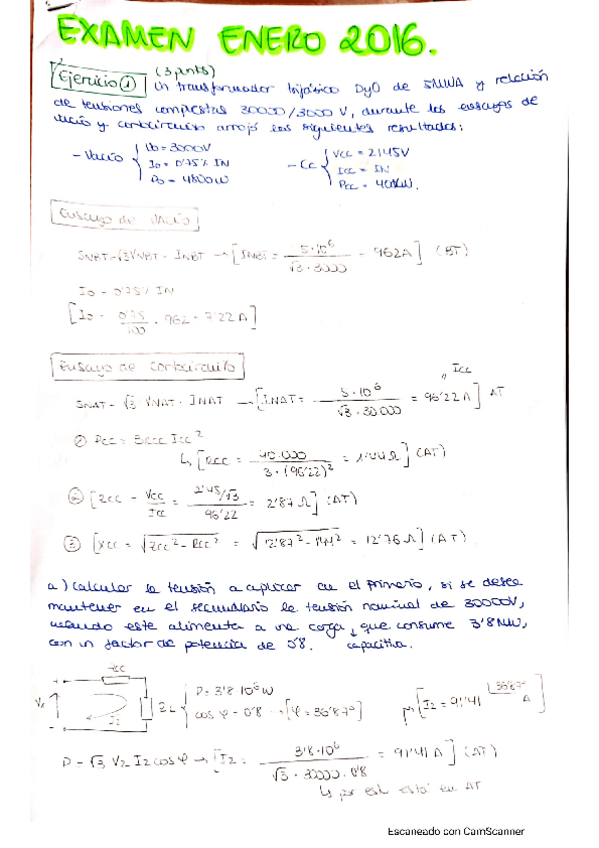 EXAMEN ENERO 2016.
Ejercicio ① (3 pnts) Un transformador trifásico Dy0 de 5MWA y relación
de tensiones compuestas 30000/3000 V, durante los ensayos de
vacío y cortocircuito arrojó los siguientes resultados:
- Vacío { Uo = 3000V
Io = 0'75% IN
Po = 4800W
- CC { Vcc = 2145V
Icc = IN
Pcc = 40kW.
Ensayo de vacío
SNBT = √3 VNBT · INBT → [INBT = 5·10⁶ / √3 · 3000 = 962A] (BT)
Io = 0'75% IN
[Io = 0'75/100 · 962 = 7'22 A]
Ensayo de cortocircuito
SNAT = √3 VNAT · INAT → [INAT = 5·10⁶ / √3 · 30000 = 96'22 A] AT
" Icc
① Pcc = 3Rcc Icc²
↳ [Rcc = 40.000 / 3·(96'22)² = 1'44 Ω] (AT)
② [Zcc = Vcc/Icc = 2145/√3 / 96'22 = 12'87 Ω] (AT)
③ [Xcc = √Zcc² - Rcc² = √12'87² - 1'44² = 12'76 Ω] (AT)
a) Calcular la tensión a aplicar en el primario, si se desea
mantener en el secundario la tensión nominal de 30000V,
cuando este alimenta a una carga, que consume 3'8 MW,
con un factor de potencia de 0'8. capacitiva.
Zcc
+ +
V₁ I2 ZL { P = 3'8·10⁶ W
cos φ = 0'8 → [φ = 36'87º]
[I2 = 91'41 |36'87º A]
P = √3 V2 I2 cos φ → [I2 = 3'8·10⁶ / √3 · 30000 · 0'8 = 91'41 A] (AT)
↳ por est está en AT
Escaneado con CamScanner